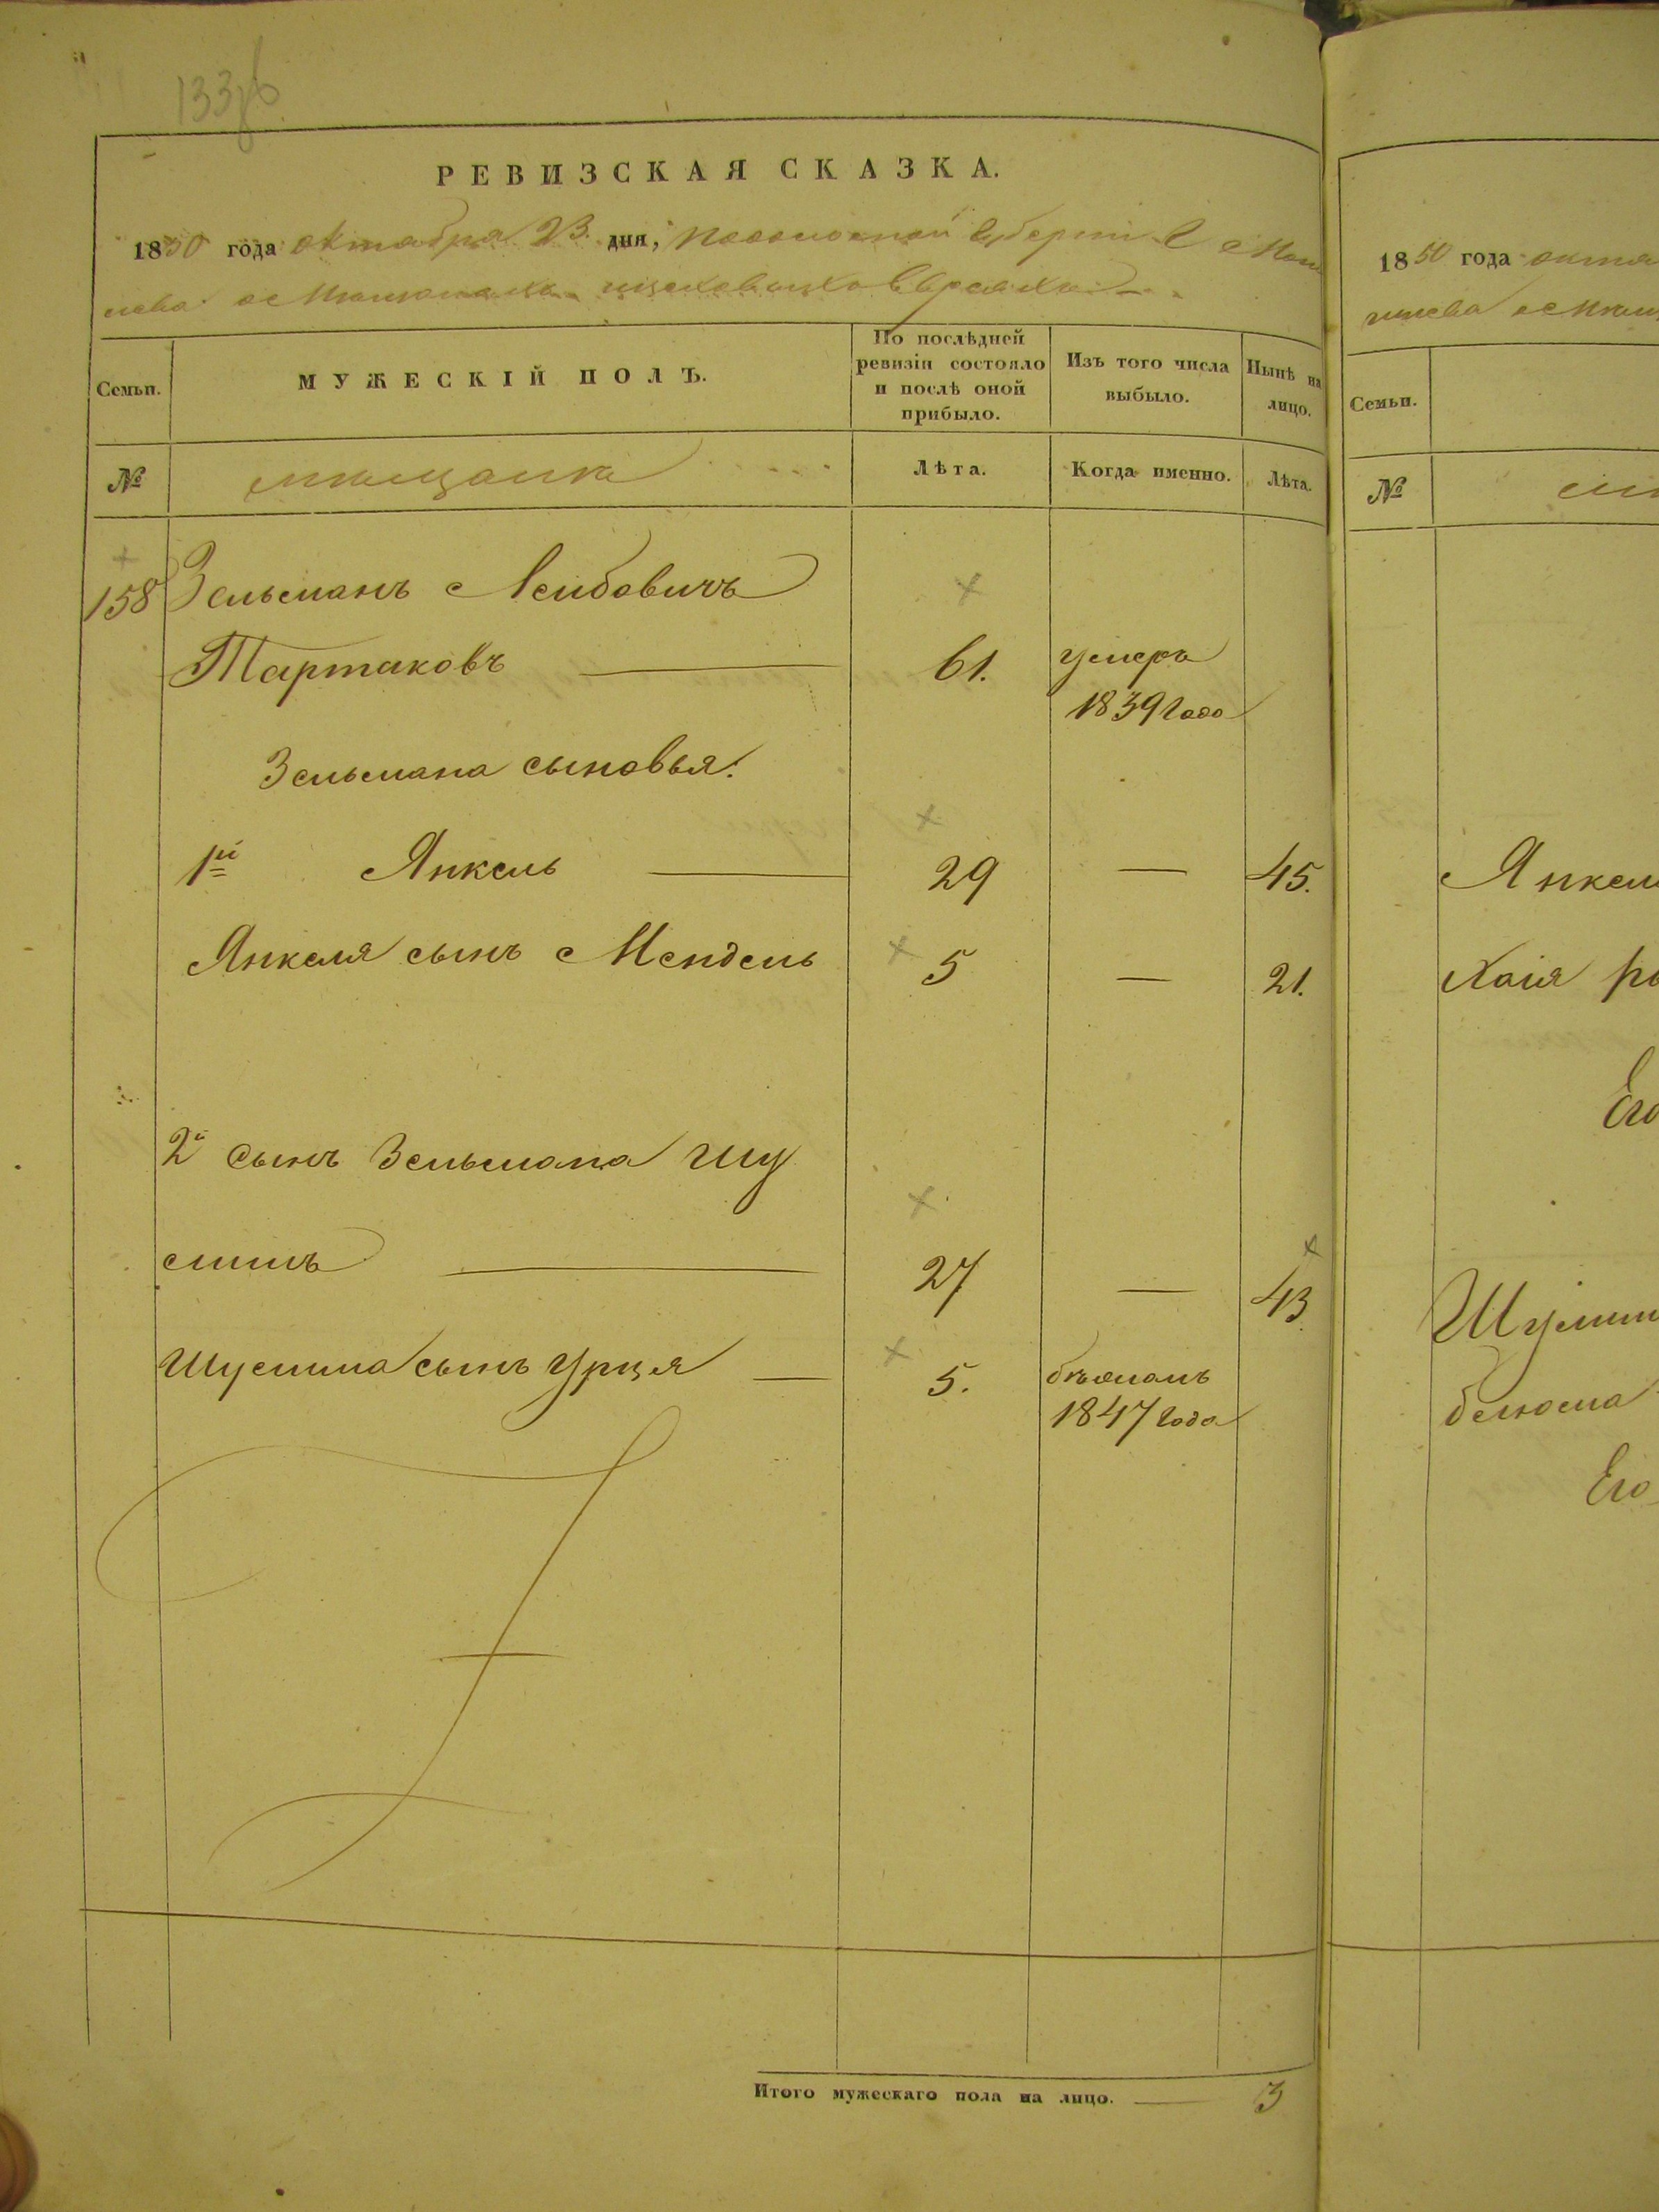 133
РЕВИЗСКАЯ СКАЗКА.
1850 года октября 23 дня, Подольской Губернии
Семьи.
МУЖЕСКІЙ ПОЛЪ.
По послѣдней
ревизіи состояло
и послѣ оной
прибыло.
Изъ того числа
выбыло.
Нынѣ на
лицо.
№
Лѣта.
Когда именно.
Лѣта.
158 Зельманъ Лейбовичъ
Тартаковъ 61. умеръ
1839 Года
Зельмана сыновья:
1й Янкель — 29 — 45.
Янкеля сынъ Мендель 5 — 21.
2й сынъ Зельмана Шу
лимъ — 27 — 43
Шулима сынъ Урця — 5. бѣжалъ
1847 Года
Итого мужескаго пола на лицо. — 3
1850 года октя
Семьи.
№
Янкел
Хаія
Его
Шулим
Его